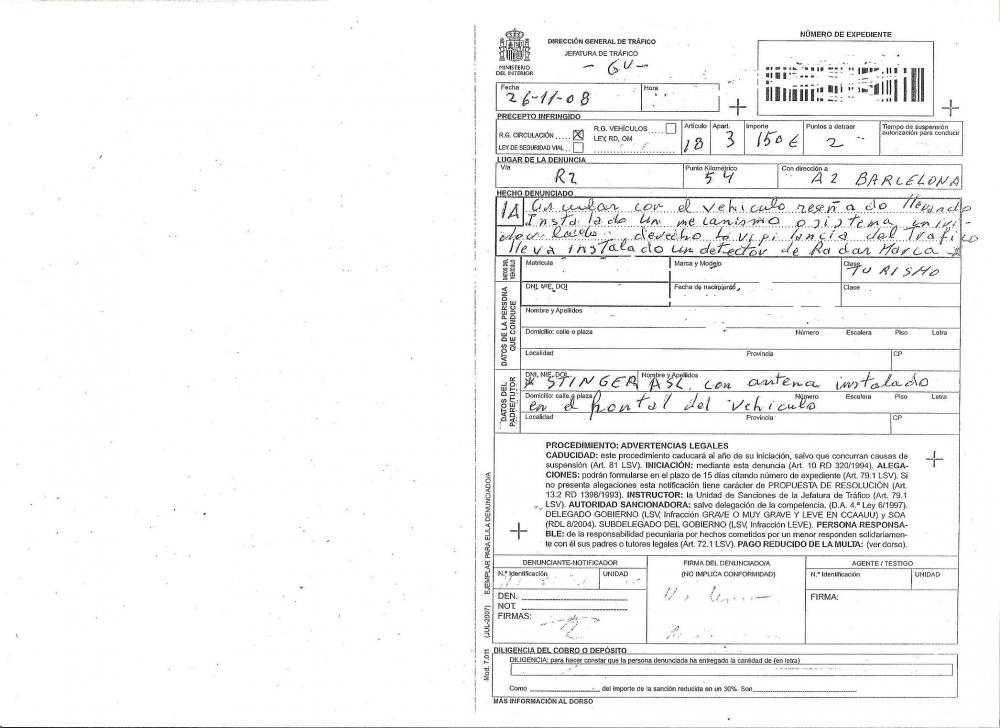 NÚMERO DE EXPEDIENTE
DIRECCIÓN GENERAL DE TRÁFICO
JEFATURA DE TRÁFICO
MINISTERIO
DEL INTERIOR
- GU -
Fecha
26-11-08
Hora
PRECEPTO INFRINGIDO
R.G. CIRCULACIÓN ..... X
R.G. VEHÍCULOS
LEY, RD, OM
LEY DE SEGURIDAD VIAL ...
Artículo 18
Apart. 3
Importe 150 €
Puntos a detraer 2
Tiempo de suspensión
autorización para conducir
LUGAR DE LA DENUNCIA
Vía R2
Punto Kilométrico 54
Con dirección a A2 BARCELONA
HECHO DENUNCIADO
1A Circular con el vehiculo reseñado llevando
Instalado un mecanismo o sistema
a la vigilancia del Trafico
lleva instalado un detector de Radar Marca *
DATOS DEL VEHÍCULO
Matrícula
Marca y Modelo
Clase TURISMO
DATOS DE LA PERSONA QUE CONDUCE
DNI, NIE, DOI
Fecha de nacimiento
Clase
Nombre y Apellidos
Domicilio: calle o plaza
Número
Escalera
Piso
Letra
Localidad
Provincia
CP
DATOS DEL PADRE/TUTOR
DNI, NIE, DOI
Nombre y Apellidos
* STINGER ASL, con antena instalado
Domicilio: calle o plaza
Número
Escalera
Piso
Letra
en el frontal del vehiculo
Localidad
Provincia
CP
PROCEDIMIENTO: ADVERTENCIAS LEGALES
CADUCIDAD: este procedimiento caducará al año de su iniciación, salvo que concurran causas de
suspensión (Art. 81 LSV). INICIACIÓN: mediante esta denuncia (Art. 10 RD 320/1994). ALEGA-
CIONES: podrán formularse en el plazo de 15 días citando número de expediente (Art. 79.1 LSV). Si
no presenta alegaciones esta notificación tiene carácter de PROPUESTA DE RESOLUCIÓN (Art.
13.2 RD 1398/1993). INSTRUCTOR: la Unidad de Sanciones de la Jefatura de Tráfico (Art. 79.1
LSV). AUTORIDAD SANCIONADORA: salvo delegación de la competencia. (D.A. 4.ª Ley 6/1997).
DELEGADO GOBIERNO (LSV, Infracción GRAVE O MUY GRAVE Y LEVE EN CCAAUU) y SOA
(RDL 8/2004). SUBDELEGADO DEL GOBIERNO (LSV, Infracción LEVE). PERSONA RESPONSA-
BLE: de la responsabilidad pecuniaria por hechos cometidos por un menor responden solidariamen-
te con él sus padres o tutores legales (Art. 72.1 LSV). PAGO REDUCIDO DE LA MULTA: (ver dorso).
DENUNCIANTE-NOTIFICADOR
N.º Identificación
UNIDAD
DEN.
NOT.
FIRMAS:
FIRMA DEL DENUNCIADO/A
(NO IMPLICA CONFORMIDAD)
AGENTE / TESTIGO
N.º Identificación
UNIDAD
FIRMA:
DILIGENCIA DEL COBRO O DEPÓSITO
DILIGENCIA: para hacer constar que la persona denunciada ha entregado la cantidad de (en letra)
Como
del importe de la sanción reducida en un 30%. Son
MÁS INFORMACIÓN AL DORSO
Mod. 7.011 (JUL-2007) EJEMPLAR PARA EL/LA DENUNCIADO/A